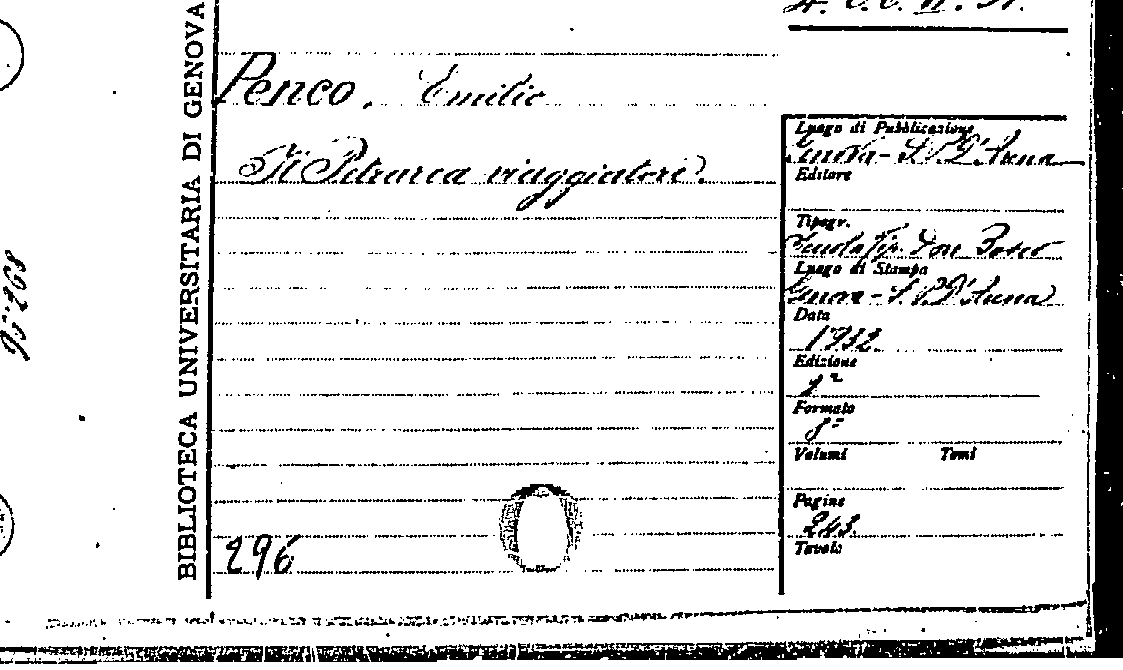 BIBLIOTECA UNIVERSITARIA DI GENOVA
Penco, Emilio
Il Petrarca viaggiatore.
296
Luogo di Pubblicazione
Genova - S. P. D'Arena
Editore
Tipogr.
Scuola Tip. Don Bosco
Luogo di Stampa
Genova - S. P. D'Arena
Data
1932
Edizione
Formato
8°
Volumi Tomi
Pagine
243.
Tavole